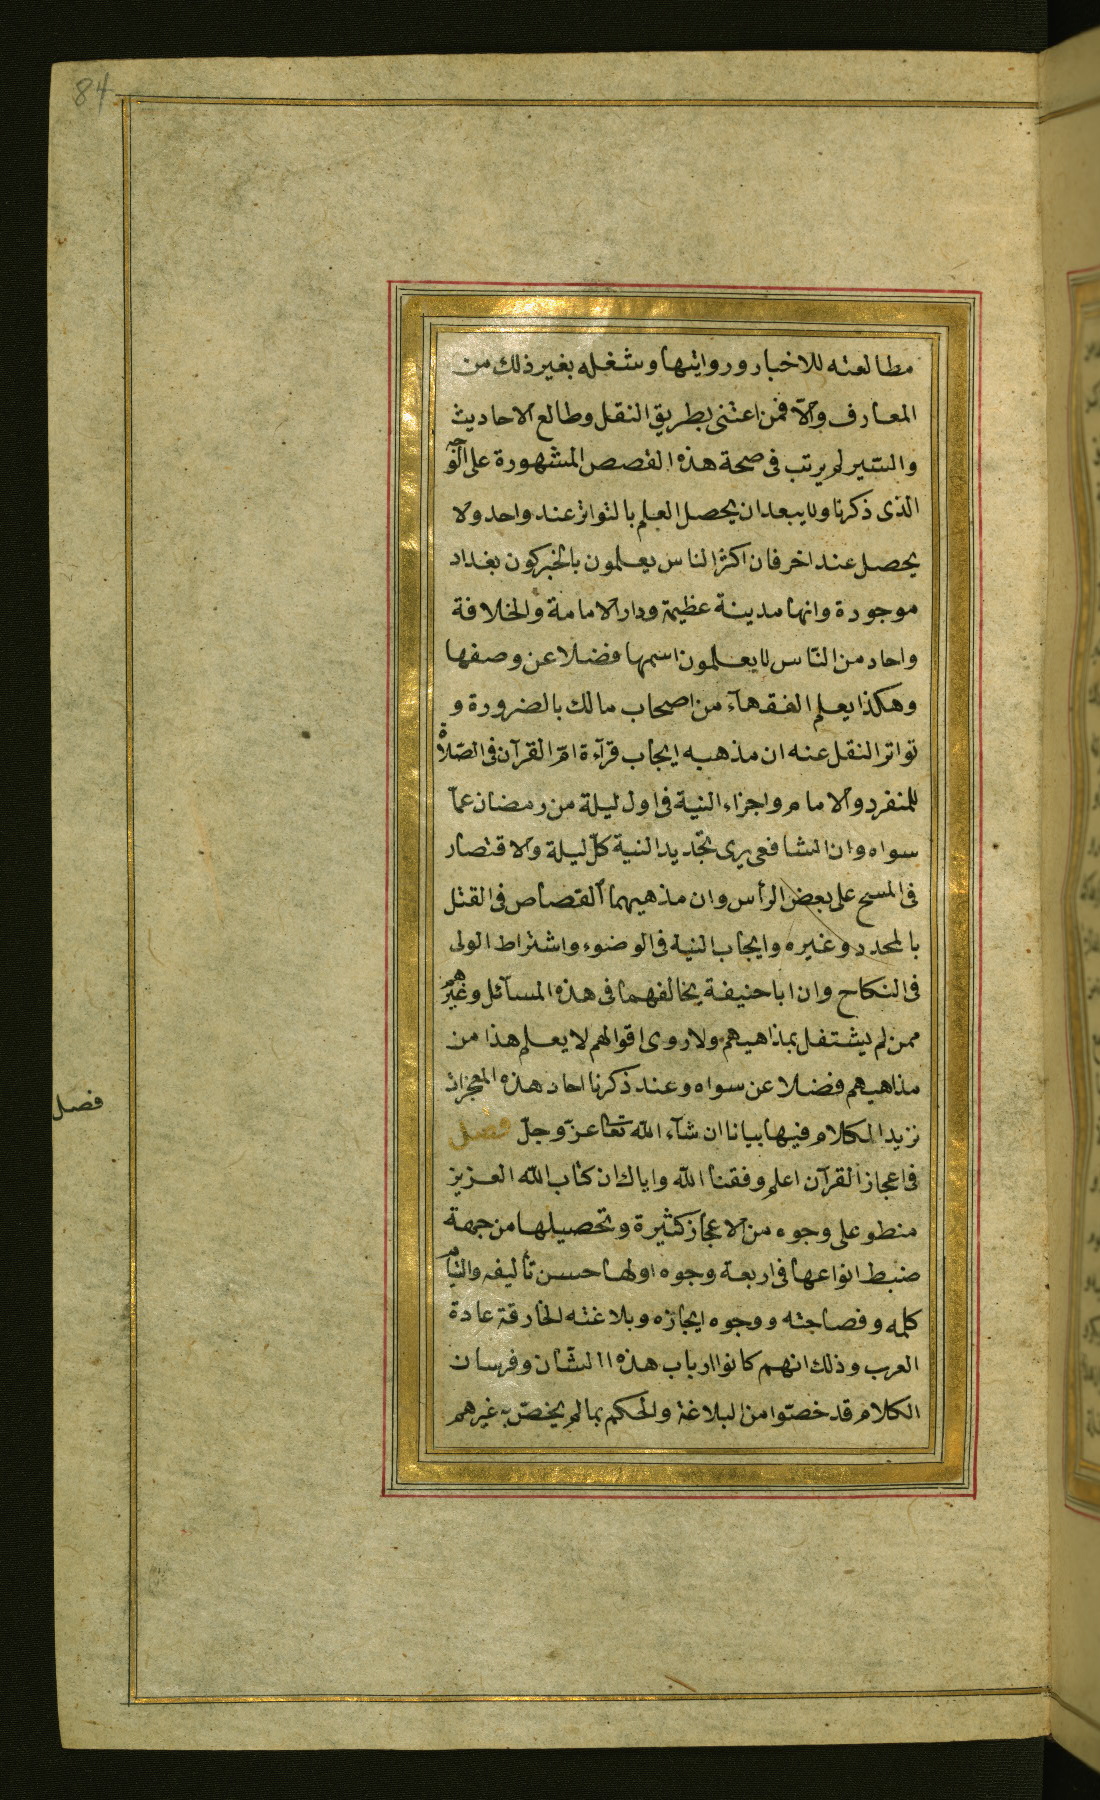 84
مطالعته للاخبار وروايتها وشغله بغير ذلك من
المعارف والّا فمن اعتنى بطريق النقل وطالع الاحاديث
والسّير لم يرتب فى صحة هذه القصص المشهورة على الوجه
الذى ذكرنا ولا يبعد ان يحصل العلم بالتواتر عند واحد ولا
يحصل عند اخر فان اكثر الناس يعلمون بالخبر كون بغداد
موجودة وانها مدينة عظيمة ودار الامامة والخلافة
واحاد من النّاس لا يعلمون اسمها فضلا عن وصفها
وهكذا يعلم الفقهآء من اصحاب مالك بالضرورة و
تواتر النقل عنه ان مذهبه ايجاب قرآءة امّ القرآن فى الصّلاة
للمنفرد والامام واجزاء النية فى اول ليلة من رمضان عمّا
سواه وان الشافعى يرى تجديد النية كلّ ليلة والاقتصار
فى المسح على بعض الرأس وان مذهبهما القصاص فى القتل
بالمحدد وغيره وايجاب النية فى الوضوء واشتراط الولى
فى النكاح وان ابا حنيفة يخالفهما فى هذه المسآئل وغيرهم
ممن لم يشتغل بمذاهبهم ولا روى اقوالهم لا يعلم هذا من
مذاهبهم فضلا عن سواه وعند ذكرنا احاد هذه المعجزات
نزيد الكلام فيها بيانا ان شآء الله تعا عزّ وجلّ فصل
فى اعجاز القرآن اعلم وفقنا الله واياك ان كتاب الله العزيز
منطو على وجوه من الاعجاز كثيرة وتحصيلها من جهة
ضبط انواعها فى اربعة وجوه اولها حسن تأليفه والتيام
كلمه وفصاحته ووجوه ايجازه وبلاغته الخارقة عادة
العرب وذلك انهم كانوا ارباب هذا الشّان وفرسان
الكلام قد خصّوا من البلاغة والحكم بما لم يخصّ به غيرهم
فصل